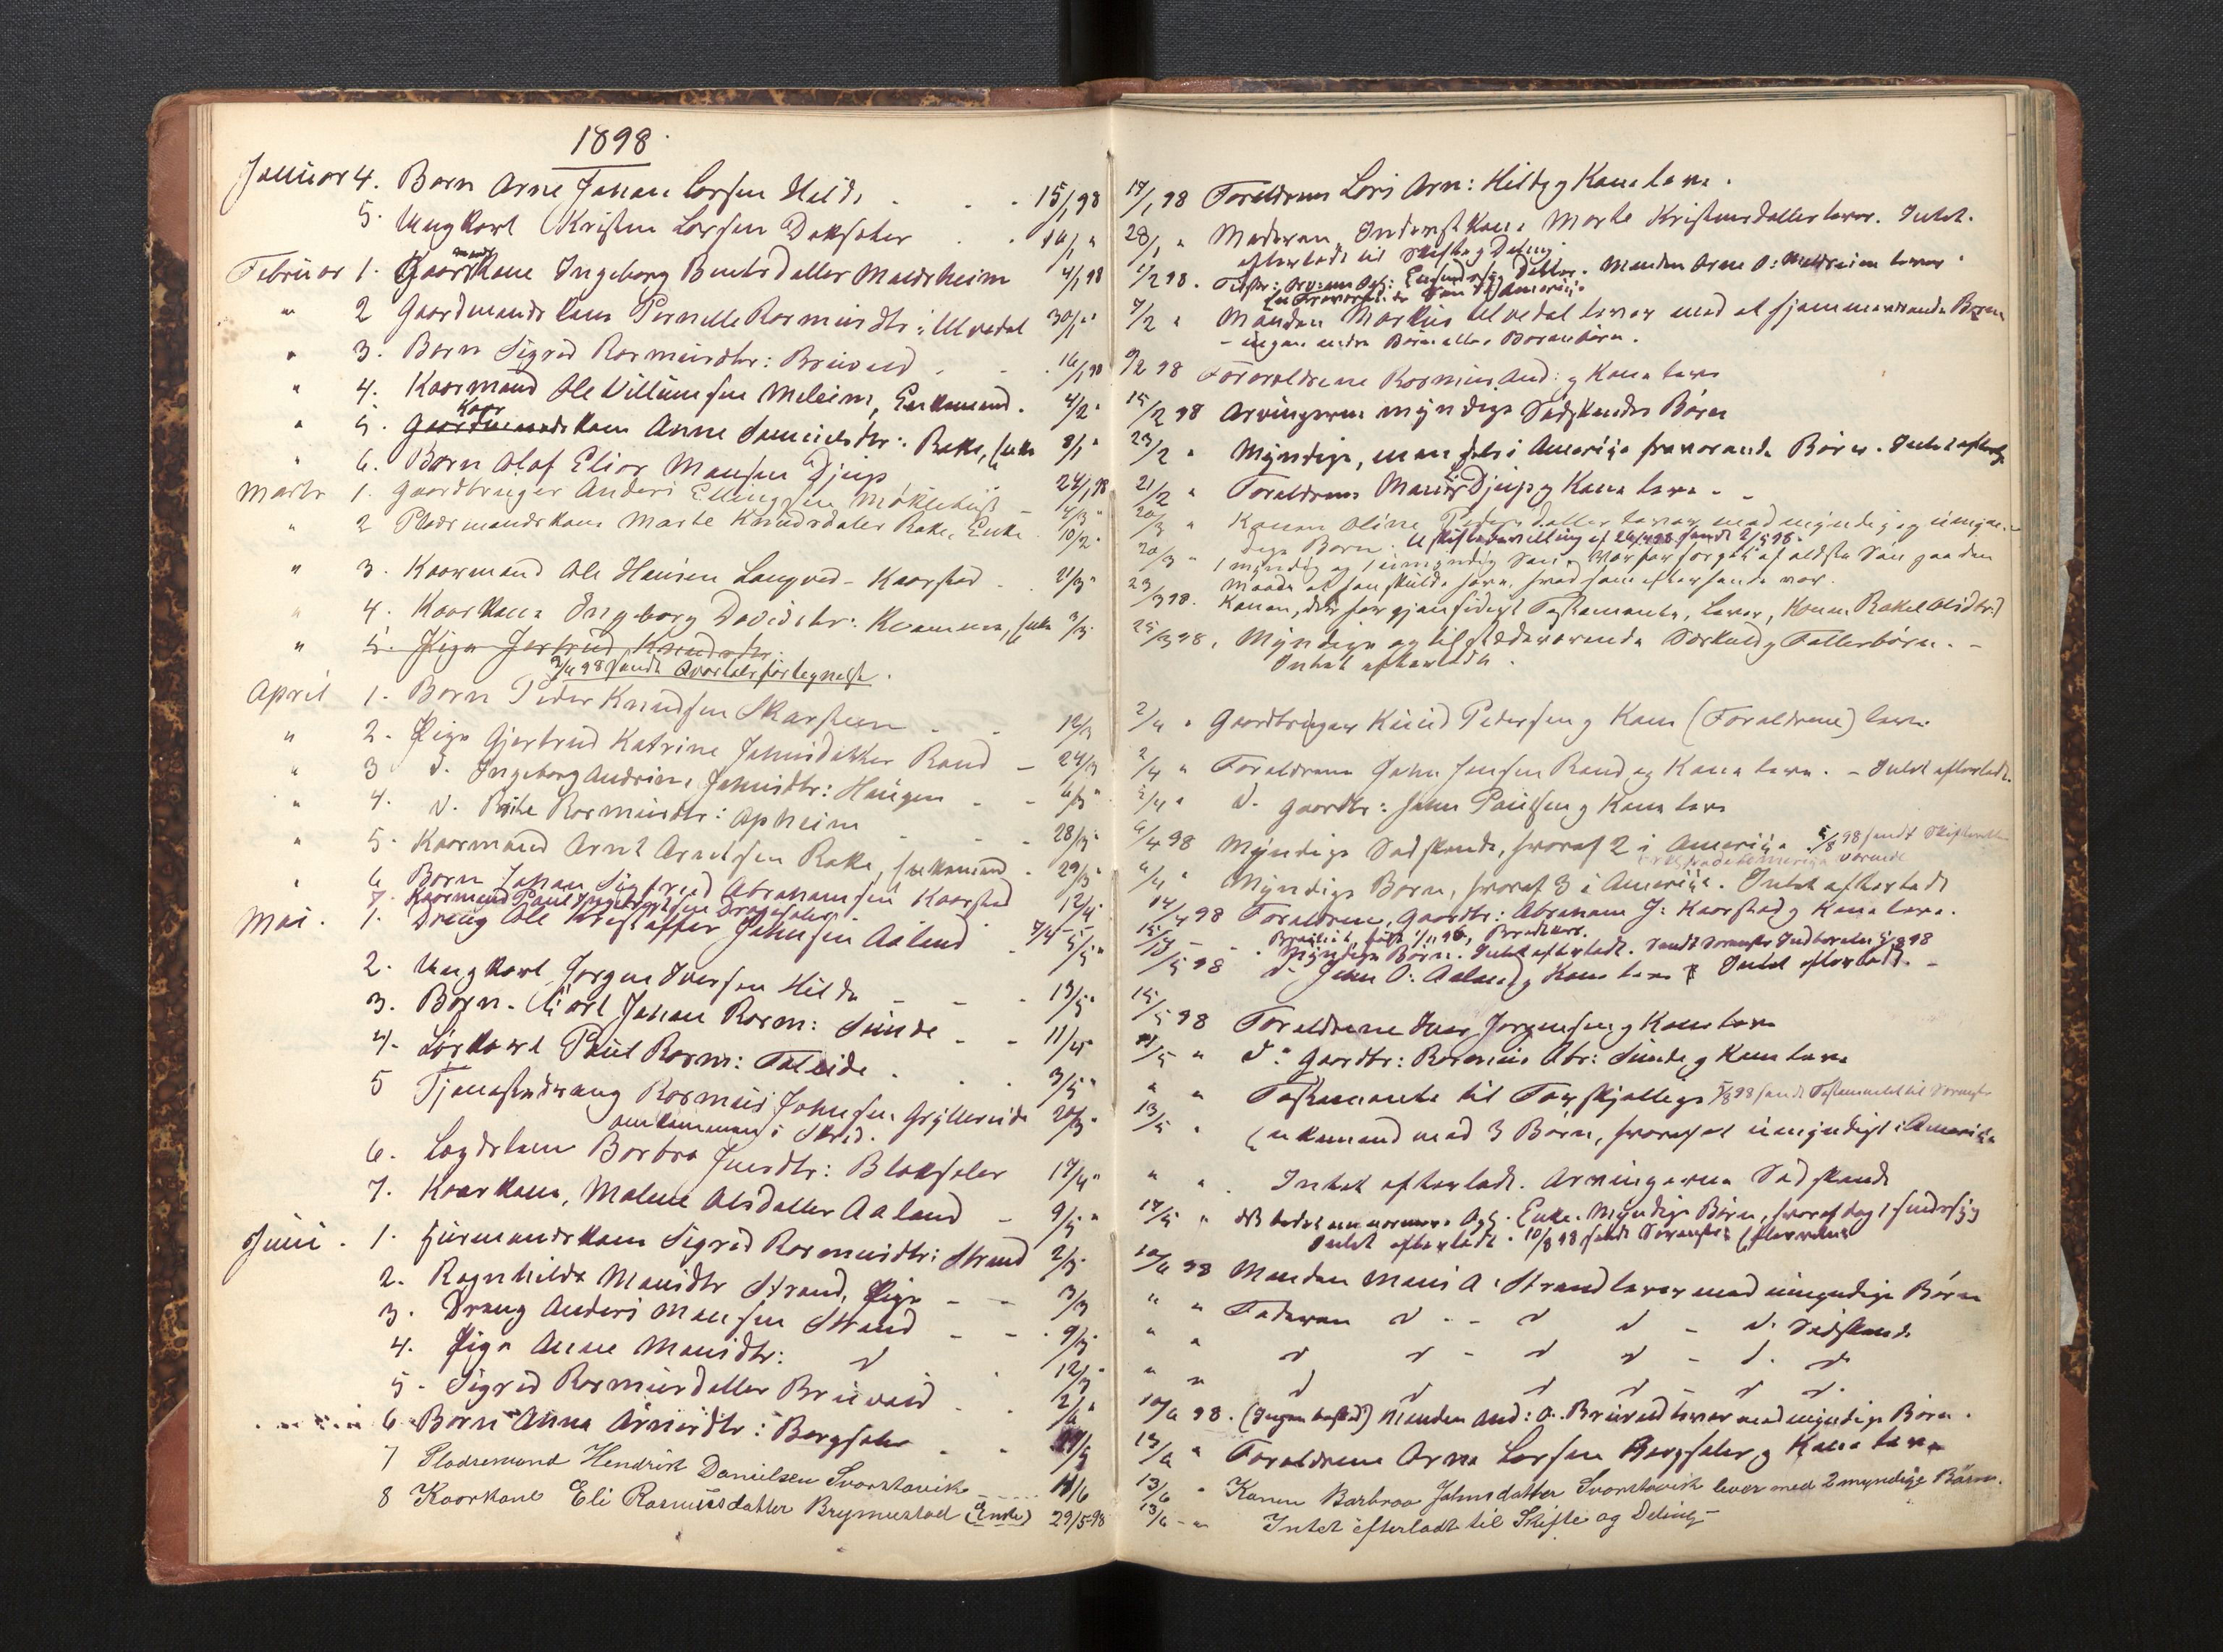 1898.
Januar 4. Barn Arne Johan Larsen Hilde - - - 15/1 98
5. Ungkarl Kristen Larsen Dokseter . . 16/1 "
Februar 1. Gaardmandskone Ingeborg Bentsdatter Maurheim 4/1 98
" 2 Gaardmandskone Pernille Rasmusdtr: Ulvedal 30/1 "
" 3. Barn Sigrid Rasmusdtr: Bruvold . . . 16/1 98
" 4. Kaarmand Ole Villumsen Meleim, Enkemand. 4/2 "
" 5. Kaar Gaardmandskone Anne Samuelsdtr: Rake, Enke 8/1 "
" 6. Barn Olaf Elias Monsen Djup 24/1 98
Marts 1. Gaardbruger Anders Ellingsen Møklebust - 4/3 "
" 2 Pladsmandskone Marte Knudsdatter Rake, Enke 10/2 "
" 3. Kaarmand Ole Hansen Langved - Kaarstad - . 21/3 "
" 4. Kaarkone Ingeborg Davidsdtr: Kvamme, Enke 3/3 "
" 5. Pige Jertrud Knudsdtr:
2/4 98 sendt Kvartalsfortegnelse.
April 1. Barn Peder Knudsen Skarsteen . . 12/3
" 2. Pige Gjertrud Katrine Johnsdatter Rand - 24/3
" 3 d. Ingeborg Andrine Johnsdtr: Haugen - - 6/3 "
" 4. d. Brite Rasmusdtr: Apheim - - - 28/3 "
" 5. Kaarmand Arnt Arnesen Rake, Enkemand - 29/3 "
" 6 Barn Johan Sigfred Abrahamsen Kaarstad 12/4
7. Kaarmand Paul Ingebrigtsen Drageseter 7/4 -
Mai. 1. Dreng Ole Kristoffer Johnsen Aaland - 5/5 "
2. Ungkarl Jørgen Iversen Hilde - - - 13/5 "
3. Barn Karl Johan Rasm: Sunde - - 11/4 "
4. Løskarl Paul Rasm: Faleide . . . 3/5 "
5 Tjenestedreng Rasmus Johnsen Gryttereide 20/3 "
omkommen i Skred.
6. Lægdslem Barbra Jensdtr: Blakseter 17/4 "
7. Kaarkone, Malene Olsdatter Aaland - 9/5 "
Juni. 1. Husmandskone Sigrid Rasmusdtr: Strand 2/3 "
2. Ragnhilda Monsdtr Strand, Pige - - 3/3
3. Dreng Anders Monsen Strand - - . 9/3 "
4. Pige Anne Monsdtr: d . 12/3 "
5. Sigrid Rasmusdatter Bruvold . . 2/6 "
6 Barn Anna Arnesdtr: Bergseter - - 29/5
7 Pladsemand Hendrik Danielsen Svorstavik - - - - 11/6
8 Kaarkone Eli Rasmusdatter Brynnestad (Enke) 29/5-98
17/1 98 Forældrene Lars Arn: Hilde og Kone leve.
28/1 " Moderen, Inderst Kone Marte Kristensdatter lever. Intet
efterladt til Skifte og Deling.
1/2 98. Manden Arne O: Maurheim lever.
7/2 " Manden Markus Ulvedal lever med et hjemmeværende Barn
- ingen andre Børn eller Børnebørn.
9/2 98 Forældrene Rasmus And: og Kone leve
15/2 98 Arvingerne myndige Sødskendes Børn
23/2 " Myndige, men dels i Amerika fraværende Børn. Intet efterladt
21/2 " Forældrene Mons Djup og Kone leve - -
20/3 " Konen Oline Pedersdatter lever med myndige og umyn-
dige Børn. Uskiftebevilling af 26/4 98 sendt 2/5 98.
20/3 " 1 myndig og 1 umyndig Søn, Værfar for gik af ældste Søn paa den
Maade at han skulde have, hvad som efter hende var.
23/3 98. Konen, der har gjensidigt Testamente, lever, Konen Rakel Olsdtr:
25/3 98. Myndige og tilstedeværende Særkuld og Fællesbørn. -
Intet efterladt.
2/4 " Gaardbruger Knud Pedersen og Kone (Forældrene) leve.
2/4 " Forældrene John Jensen Rand og Kone leve. - Intet efterladt.
2/4 " d. Gaardbr: John Paulsen og Kone leve
6/4 98 Myndige Sødskende, hvoraf 2 i Amerika. 5/8 98 sendt Skifteretten
6/4 " Myndige Børn, hvoraf 3 i Amerika. Intet efterladt
14/4 98 Forældrene, Gaardbr: Abraham J: Kaarstad og Kone leve.
15/4 - - . Myndige Børn. Intet efterladt.
17/5 98 d. John O: Aaland og Kone leve. Intet efterladt. -
15/5 98 Forældrene Iver Jørgensen og Kone leve
21/5 " d. Gaardbr: Rasmus Abr: Sunde og Kone leve
" " Testamente til Forskjellige 5/8 98 sendt Testamentet til
13/5 " Enkemand med 3 Børn, hvoraf et umyndigt i Amerika
" " . Intet efterladt. Arvingerne Sødskende
17/5 " Enke. Myndige Børn, hvoraf dog 1 sindssyg
Intet efterladt. 10/8 98 sendt
10/6 98 Manden Mons A: Strand lever med umyndige Børn
" " Faderen d - - d d - d. Sødskende
" " d d - d d - d. d
" " d d d d - d d.
10/6 98. Manden And: A. Bruvold lever med myndige Børn.
13/6 " Forældrene Arne Larsen Bergseter og Kone leve
13/6 " Konen Barbroa Johnsdatter Svorstavik lever med 2 myndige Børn.
13/6 - " Intet efterladt til Skifte og Deling -